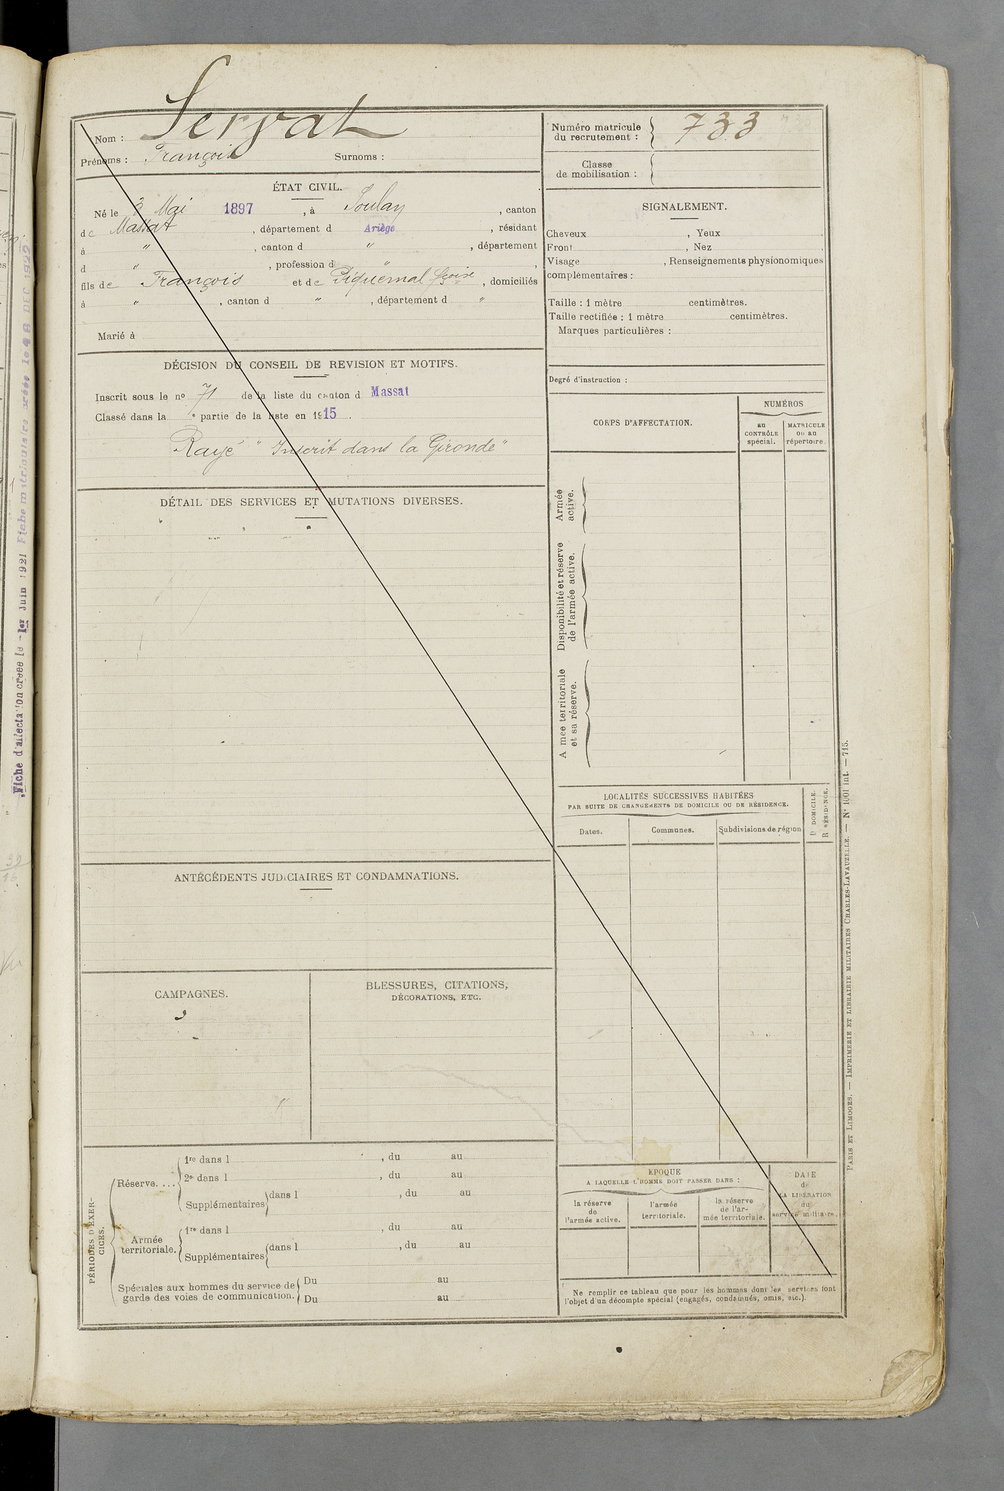 Servat
Nom :
Prénoms : François Surnoms :
Numéro matricule
du recrutement : 733
Classe
de mobilisation :
ÉTAT CIVIL.
Né le 3 Mai 1897, à Soulan, canton
de Massat, département d Ariège, résidant
à ", canton d ", département
d ", profession d ",
fils de François et de Piquemal, domiciliés
à ", canton d ", département d "
Marié à
SIGNALEMENT.
Cheveux , Yeux
Front , Nez
Visage , Renseignements physionomiques
complémentaires :
Taille : 1 mètre centimètres.
Taille rectifiée : 1 mètre centimètres.
Marques particulières :
Degré d'instruction :
DÉCISION DU CONSEIL DE REVISION ET MOTIFS.
Inscrit sous le no 71 de la liste du canton d Massat
Classé dans la e partie de la liste en 1915.
Rayé "Inscrit dans la Gironde"
DÉTAIL DES SERVICES ET MUTATIONS DIVERSES.
CORPS D'AFFECTATION.
NUMÉROS
au
CONTRÔLE
spécial.
MATRICULE
ou au
répertoire.
Armée
active.
Disponibilité et réserve
de l'armée active.
Armée territoriale
et sa réserve.
LOCALITÉS SUCCESSIVES HABITÉES
PAR SUITE DE CHANGEMENTS DE DOMICILE OU DE RÉSIDENCE.
Dates.
Communes.
Subdivisions de région
D. DOMICILE.
R. RÉSIDENCE.
ANTÉCÉDENTS JUDICIAIRES ET CONDAMNATIONS.
CAMPAGNES.
BLESSURES, CITATIONS,
DÉCORATIONS, ETC.
PÉRIODES D'EXER-
CICES.
Réserve. ...
1re dans l , du au
2e dans l , du au
Supplémentaires dans l , du au
Armée
territoriale.
1re dans l , du au
Supplémentaires dans l , du au
Spéciales aux hommes du service de
garde des voies de communication.
Du au
Du au
ÉPOQUE
A LAQUELLE L'HOMME DOIT PASSER DANS :
la réserve
de
l'armée active.
l'armée
territoriale.
la réserve
de l'ar-
mée territoriale.
DATE
de
LA LIBÉRATION
du
service militaire.
Ne remplir ce tableau que pour les hommes dont les services font
l'objet d'un décompte spécial (engagés, condamnés, omis, etc.).
PARIS ET LIMOGES. — IMPRIMERIE ET LIBRAIRIE MILITAIRES CHARLES-LAVAUZELLE. — No 1001 int. — 715.
Fiche d'affectation créée le 1er Juin 1921
Fiche matriculaire créée le 8 DEC 1922